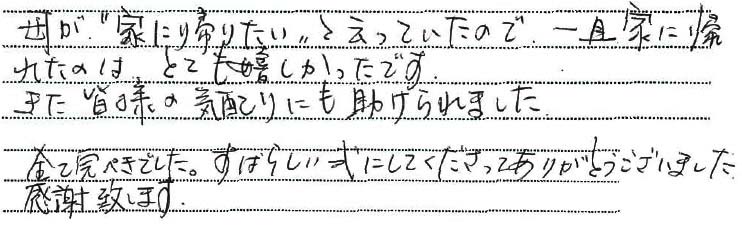 母が、"家に帰りたい"と言っていたので、一旦家に帰
れたのは、とても嬉しかったです。
また皆様の気配りにも助けられました。
全て完ぺきでした。すばらしい式にしてくださってありがとうございました
感謝致します。